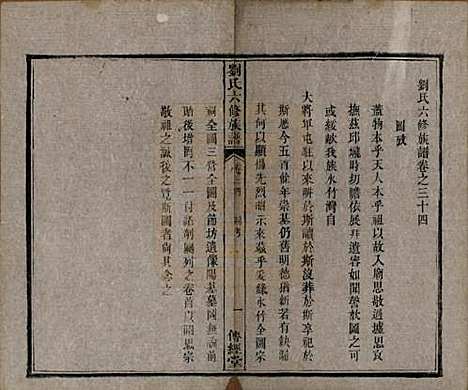 劉氏六修族譜卷之三十四
圖攷
蓋物本乎天人本乎祖以故入廟思敬過墟思哀
撫茲邱壠時切瞻依展拜遺容如聞謦欬圖之
或緩歟我族水竹灣自
大將軍屯駐以來耕於斯讀於斯沒葬於斯享祀於
斯歷今五百餘年崇基仍舊明德猶新若有缺漏
其何以揚先烈昭示來茲乎爰錄水竹圖宗
祠全圖三堂全圖及節坊遺像陽基墓圖無論前
修增刪不一付諸剞劂列之卷首以昭思宗
敬祖之誠後之覽斯圖者尚其念之
劉氏六修族譜
卷三十四
圖攷
一
傳經堂